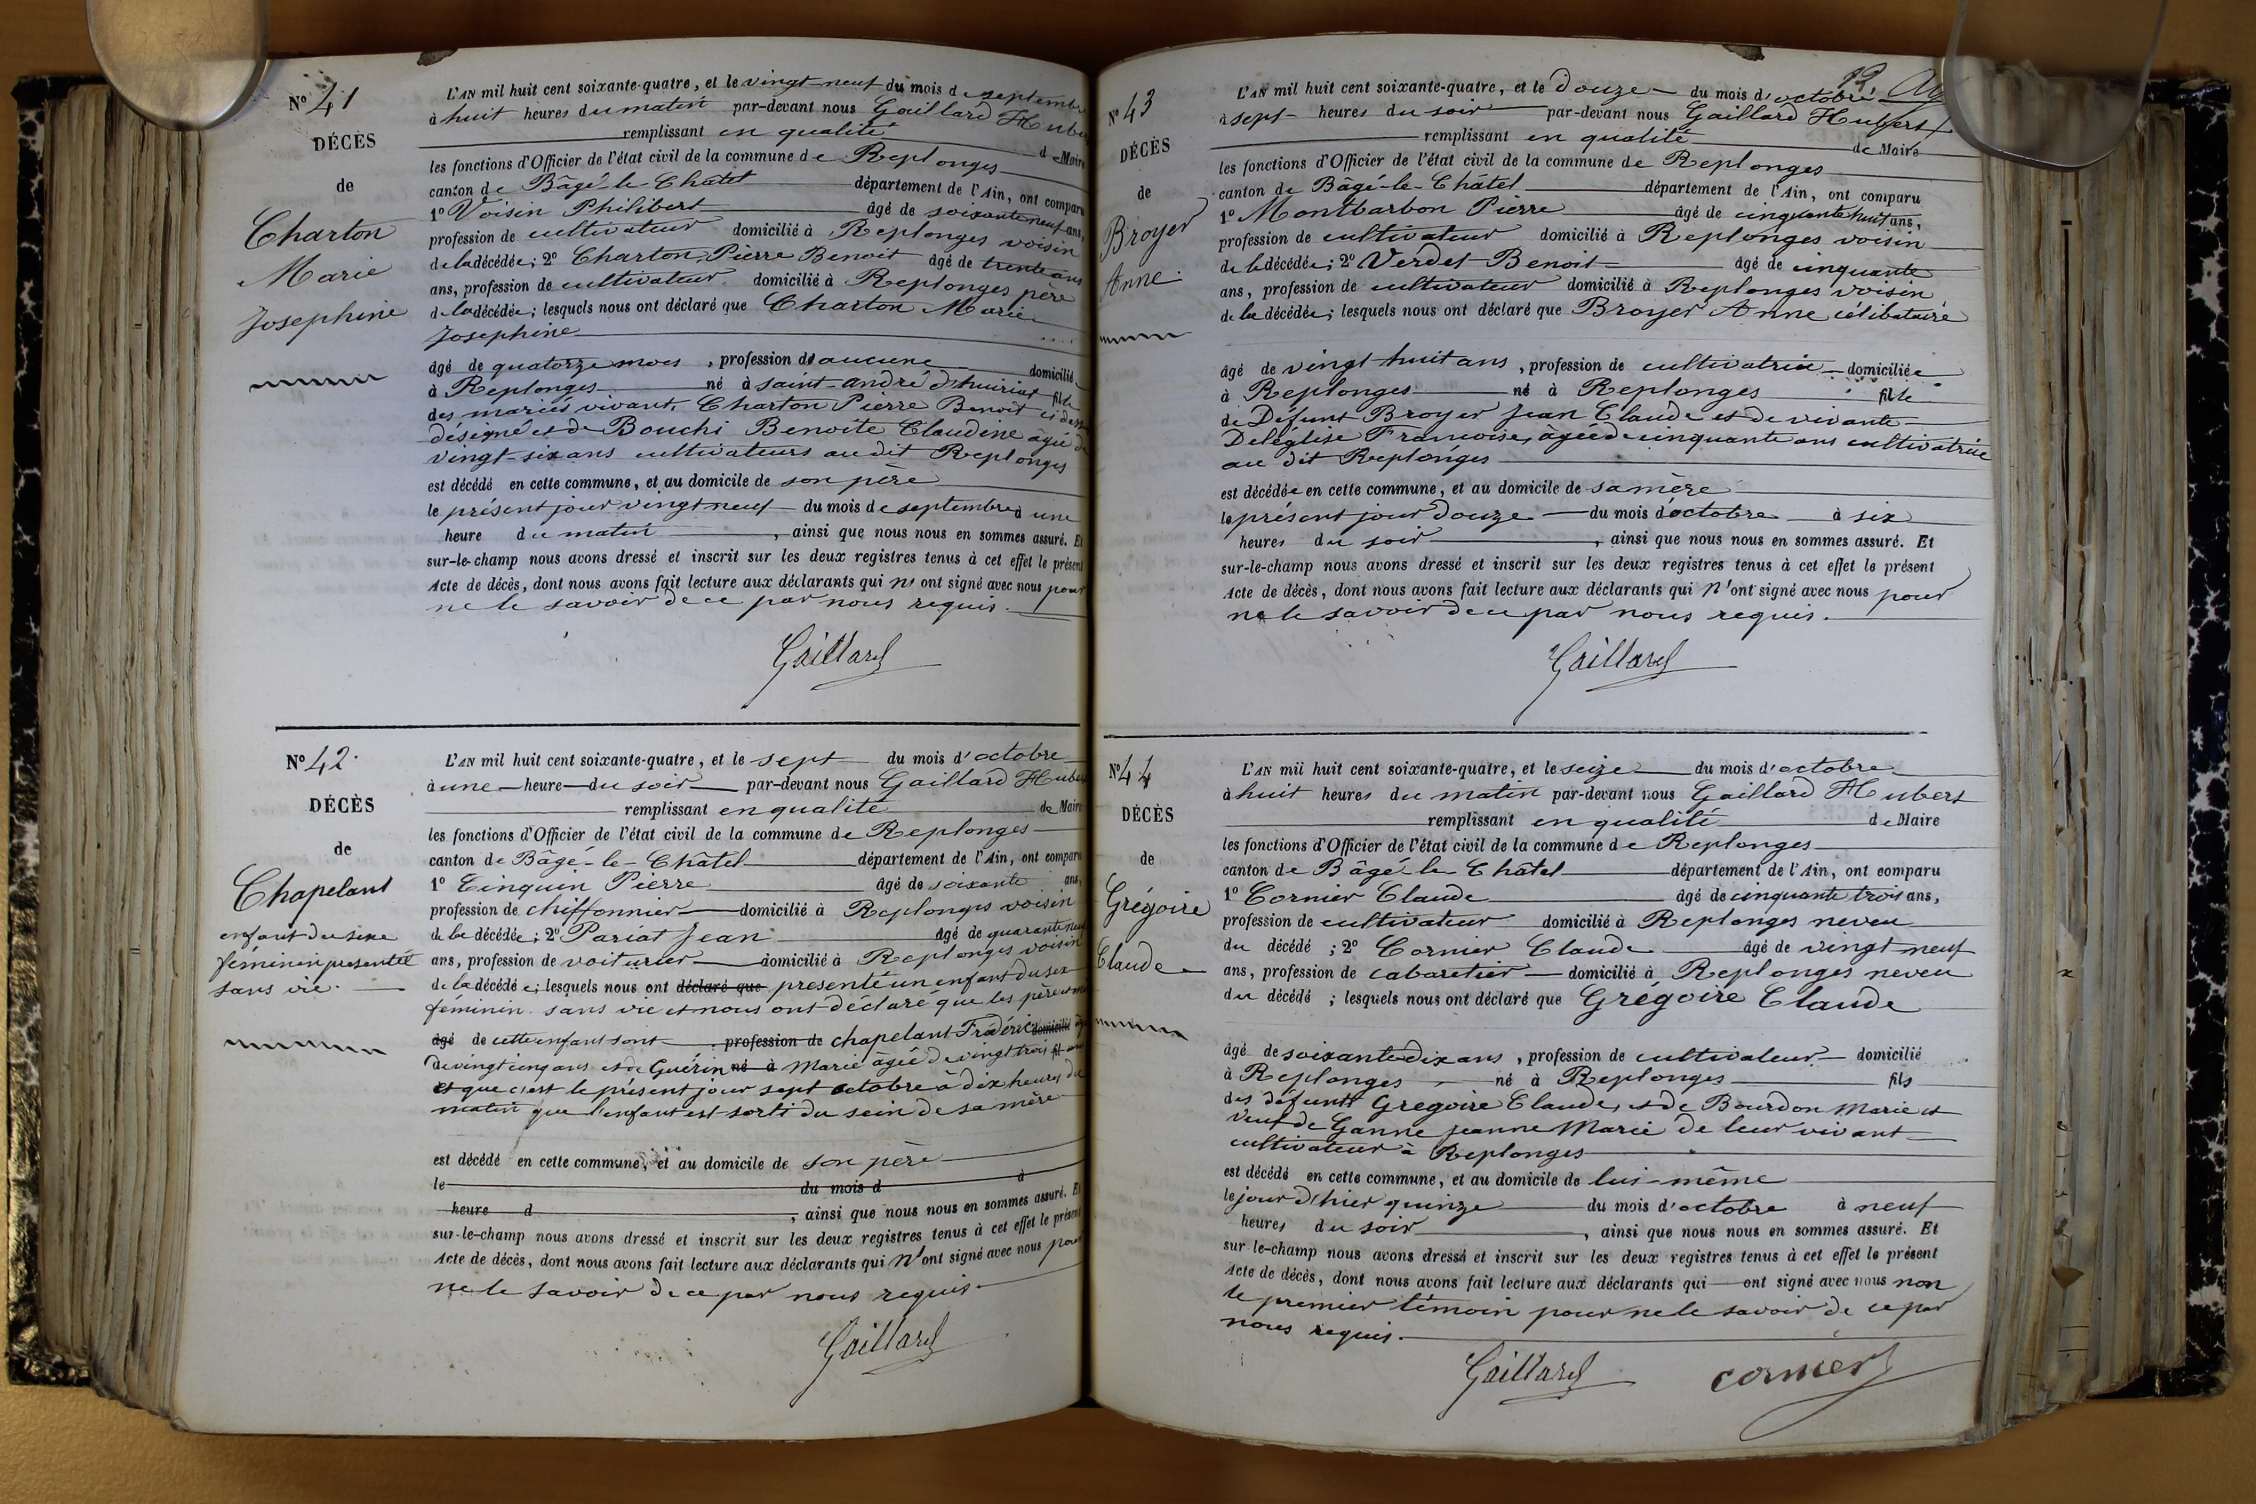 N° 41
DÉCÈS
de
Charton
Marie
Josephine
L'AN mil huit cent soixante-quatre, et le vingt neuf du mois de septembre
à huit heures du matin par-devant nous Gaillard Hubert
remplissant en qualité de Maire
les fonctions d'Officier de l'état civil de la commune de Replonges
canton de Bâgé-le-Châtel département de l'Ain, ont comparu
1° Voisin Philibert âgé de soixante neuf ans,
profession de cultivateur domicilié à Replonges voisin
de la décédée; 2° Charton Pierre Benoit âgé de trente ans
ans, profession de cultivateur domicilié à Replonges père
de la décédée; lesquels nous ont déclaré que Charton Marie
Josephine
âgé de quatorze mois, profession de aucune domicilié
à Replonges né à saint-andré d'huiriat fille
des mariés vivant, Charton Pierre Benoit ci dessus
désigné et de Bouchi Benoite Claudine âgée de
vingt-six ans cultivateurs au dit Replonges
est décédé en cette commune, et au domicile de son père
le présent jour vingt neuf du mois de septembre à une
heure du matin, ainsi que nous nous en sommes assuré. Et
sur-le-champ nous avons dressé et inscrit sur les deux registres tenus à cet effet le présent
Acte de décès, dont nous avons fait lecture aux déclarants qui n'ont signé avec nous pour
ne le savoir de ce par nous requis.
Gaillard
N° 42.
DÉCÈS
de
Chapelant
enfant du sexe
féminin presentée
sans vie.
L'AN mil huit cent soixante-quatre, et le sept du mois d'octobre
à une heure du soir par-devant nous Gaillard Hubert
remplissant en qualité de Maire
les fonctions d'Officier de l'état civil de la commune de Replonges
canton de Bâgé-le-Châtel département de l'Ain, ont comparu
1° Cinquin Pierre âgé de soixante ans,
profession de chiffonnier domicilié à Replonges voisin
de la décédée; 2° Pariat Jean âgé de quarante neuf
ans, profession de voiturier domicilié à Replonges voisin
de la décédée; lesquels nous ont déclaré que presenté un enfant du sex
féminin sans vie et nous ont déclaré que les père et mère
âgé de cette enfant sont profession de chapelant Frédéric domicilié âgé
de vingt cinq ans et de Guérin né à Marie âgée de vingt trois fil ans
et que c'est le présent jour sept octobre à dix heures du
matin que l'enfant est sorti du sein de sa mère
est décédé en cette commune, et au domicile de son père
le du mois d à
heure d, ainsi que nous nous en sommes assuré. Et
sur-le-champ nous avons dressé et inscrit sur les deux registres tenus à cet effet le présent
Acte de décès, dont nous avons fait lecture aux déclarants qui n'ont signé avec nous pour
ne le savoir de ce par nous requis.
Gaillard
N° 43
DÉCÈS
de
Broyer
Anne.
L'AN mil huit cent soixante-quatre, et le douze du mois d'octobre
à sept heures du soir par-devant nous Gaillard Hubert
remplissant en qualité de Maire
les fonctions d'Officier de l'état civil de la commune de Replonges
canton de Bâgé-le-Châtel département de l'Ain, ont comparu
1° Montbarbon Pierre âgé de cinquante huit ans,
profession de cultivateur domicilié à Replonges voisin
de la décédée; 2° Verdet Benoit âgé de cinquante
ans, profession de cultivateur domicilié à Replonges voisin
de la décédée; lesquels nous ont déclaré que Broyer Anne célibataire
âgé de vingt huit ans, profession de cultivatrice domiciliée
à Replonges né à Replonges fille
de Défunt Broyer Jean Claude et de vivante
Deléglise Francoise, âgée de cinquante ans cultivatrice
au dit Replonges
est décédée en cette commune, et au domicile de sa mère
le présent jour douze du mois d'octobre à six
heures du soir, ainsi que nous nous en sommes assuré. Et
sur-le-champ nous avons dressé et inscrit sur les deux registres tenus à cet effet le présent
Acte de décès, dont nous avons fait lecture aux déclarants qui n'ont signé avec nous pour
ne le savoir de ce par nous requis.
Gaillard
N° 44
DÉCÈS
de
Grégoire
Claude
L'AN mil huit cent soixante-quatre, et le seize du mois d'octobre
à huit heures du matin par-devant nous Gaillard Hubert
remplissant en qualité de Maire
les fonctions d'Officier de l'état civil de la commune de Replonges
canton de Bâgé-le-Châtel département de l'Ain, ont comparu
1° Cornier Claude âgé de cinquante trois ans,
profession de cultivateur domicilié à Replonges neveu
du décédé; 2° Cornier Claude âgé de vingt neuf
ans, profession de cabaretier domicilié à Replonges neveu
du décédé; lesquels nous ont déclaré que Grégoire Claude
âgé de soixante dix ans, profession de cultivateur domicilié
à Replonges né à Replonges fils
des défunts Gregoire Claude, et de Bourdon Marie et
veuf de Ganne Jeanne Marie de leur vivant
cultivateur à Replonges
est décédé en cette commune, et au domicile de lui-même
le jour d'hier quinze du mois d'octobre à neuf
heures du soir, ainsi que nous nous en sommes assuré. Et
sur-le-champ nous avons dressé et inscrit sur les deux registres tenus à cet effet le présent
Acte de décès, dont nous avons fait lecture aux déclarants qui ont signé avec nous non
le premier témoin pour ne le savoir de ce par
nous requis.
Gaillard cornier